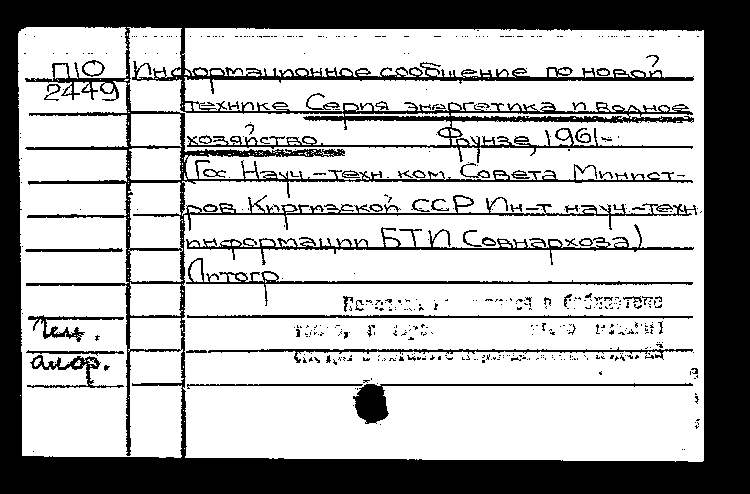 П10 Информационное сообщение по новой
2449
технике Серия энергетика и водное
хозяйство. Фрунзе, 1961-
(Гос. Науч.-техн. ком. Совета Минист-
ров Киргизской ССР Ин-т науч.-техн
информации БТИ Совнархоза)
Литогр
в библиотеке